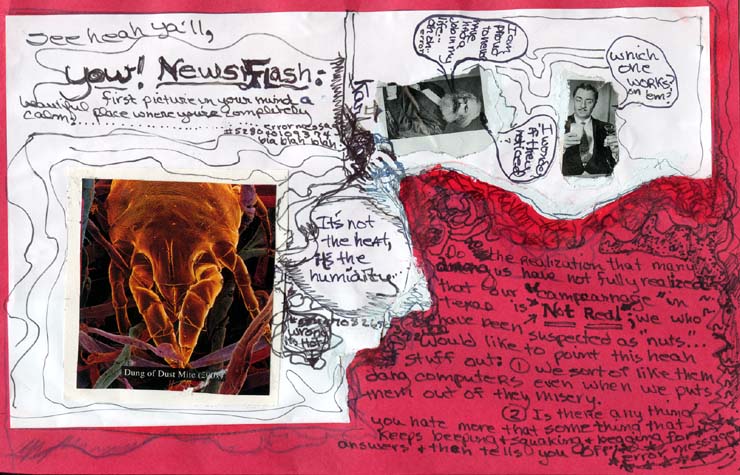 See heah ya'll,
yow! NewsFlash:
first picture in your mind a
beautiful place where you're completely
calm? ....... error message
#5280401097374
bla blah blah.
I am
proud
to have
made
kindra
job in my
life...
oh oh..
error
I wonder
if they
noticed
which
one
works
on 'em?
It's not
the heat,
it's the
humidity...
wrong
it's Hot!
Dung of Dust Mite (200x)
Do to the realization that many
among us have not fully realized
that our "campearnage" in
texas is "Not Real"; we who
have been suspected as "nuts"...
Would like to point this heah
stuff out: ① we sort of like them
dang computers even when we puts
them out of they misery.
② Is there anything
you hate more that something that
keeps beeping & squaking & begging for
answers & then tells you
error message